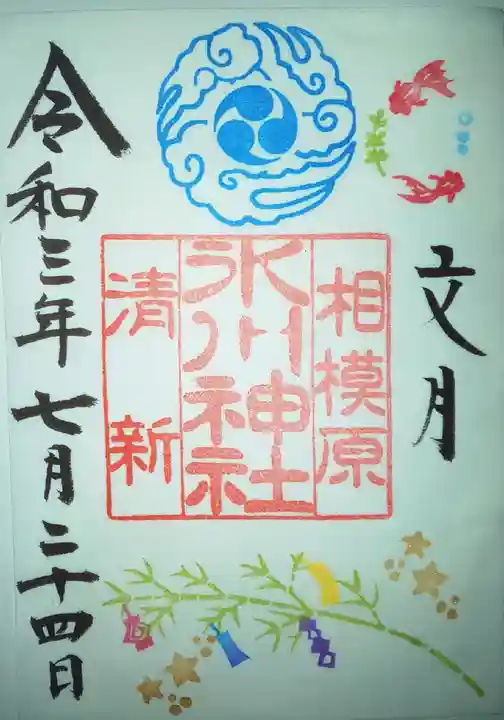 文月
相模原
氷川神社
清新
令和三年七月二十四日